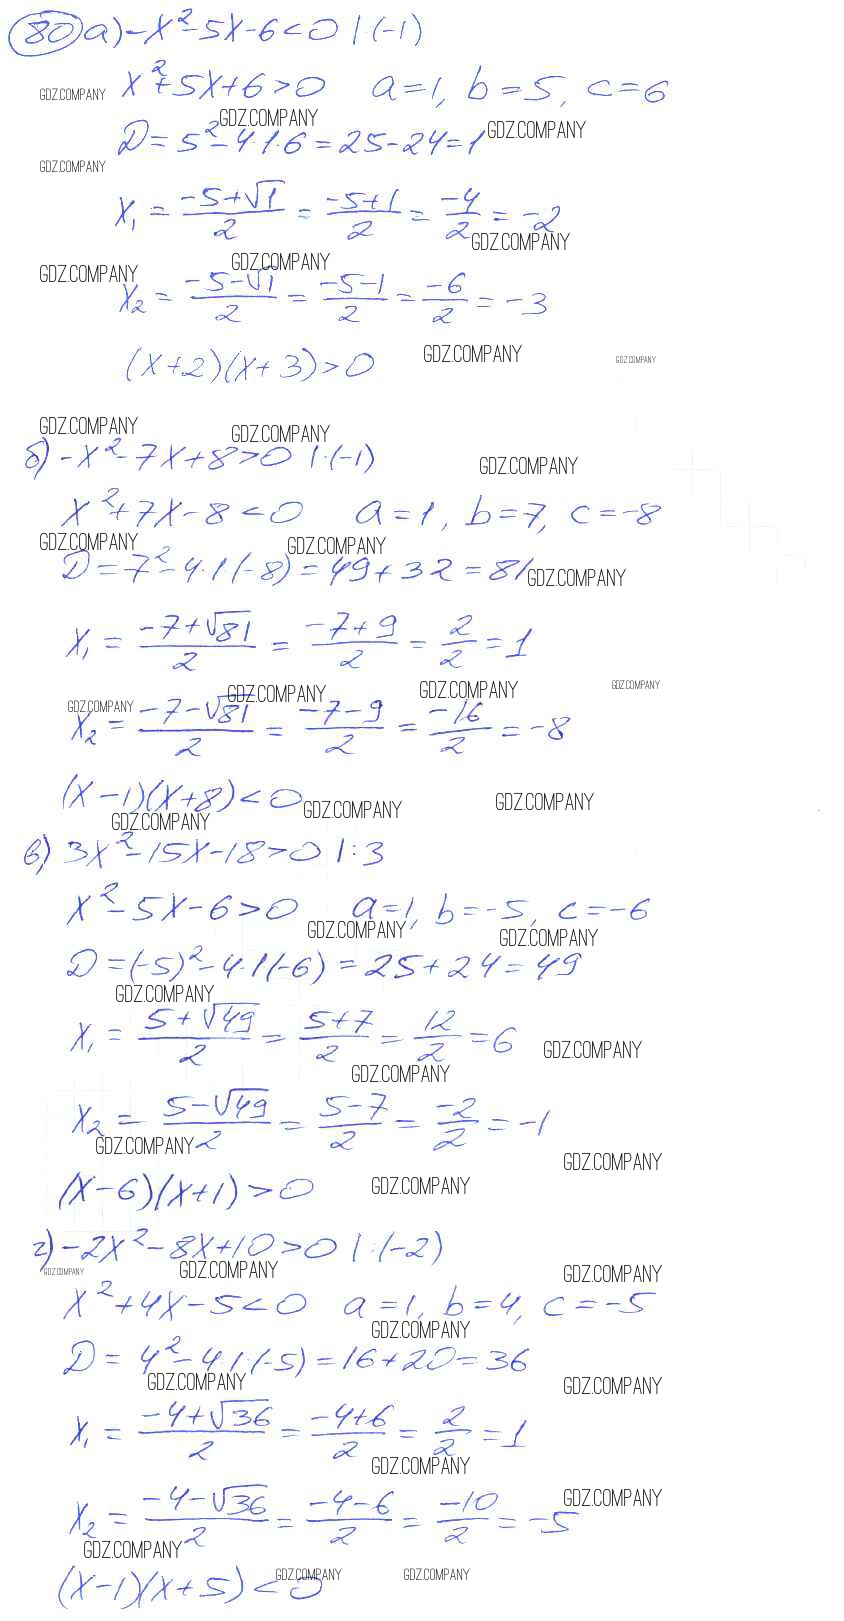 80 а) -x²-5x-6<0 | (-1)
x²+5x+6>0 a=1, b=5, c=6
GDZ.COMPANY
GDZ.COMPANY
GDZ.COMPANY
D=5²-4·1·6=25-24=1
GDZ.COMPANY
x₁=(-5+√1)/2=(-5+1)/2=-4/2=-2
GDZ.COMPANY
GDZ.COMPANY
GDZ.COMPANY
x₂=(-5-√1)/2=(-5-1)/2=-6/2=-3
(x+2)(x+3)>0
GDZ.COMPANY
GDZ.COMPANY
GDZ.COMPANY
GDZ.COMPANY
б) -x²-7x+8>0 |·(-1)
GDZ.COMPANY
x²+7x-8<0 a=1, b=7, c=-8
GDZ.COMPANY
GDZ.COMPANY
D=7²-4·1(-8)=49+32=81
GDZ.COMPANY
x₁=(-7+√81)/2=(-7+9)/2=2/2=1
GDZ.COMPANY
GDZ.COMPANY
GDZ.COMPANY
GDZ.COMPANY
x₂=(-7-√81)/2=(-7-9)/2=-16/2=-8
(x-1)(x+8)<0
GDZ.COMPANY
GDZ.COMPANY
GDZ.COMPANY
в) 3x²-15x-18>0 |:3
x²-5x-6>0 a=1, b=-5, c=-6
GDZ.COMPANY
GDZ.COMPANY
D=(-5)²-4·1(-6)=25+24=49
GDZ.COMPANY
x₁=(5+√49)/2=(5+7)/2=12/2=6
GDZ.COMPANY
GDZ.COMPANY
x₂=(5-√49)/2=(5-7)/2=-2/2=-1
GDZ.COMPANY
GDZ.COMPANY
(x-6)(x+1)>0
GDZ.COMPANY
г) -2x²-8x+10>0 |:(-2)
GDZ.COMPANY
GDZ.COMPANY
GDZ.COMPANY
x²+4x-5<0 a=1, b=4, c=-5
GDZ.COMPANY
D=4²-4·1·(-5)=16+20=36
GDZ.COMPANY
GDZ.COMPANY
x₁=(-4+√36)/2=(-4+6)/2=2/2=1
GDZ.COMPANY
GDZ.COMPANY
x₂=(-4-√36)/2=(-4-6)/2=-10/2=-5
GDZ.COMPANY
(x-1)(x+5)<0
GDZ.COMPANY
GDZ.COMPANY